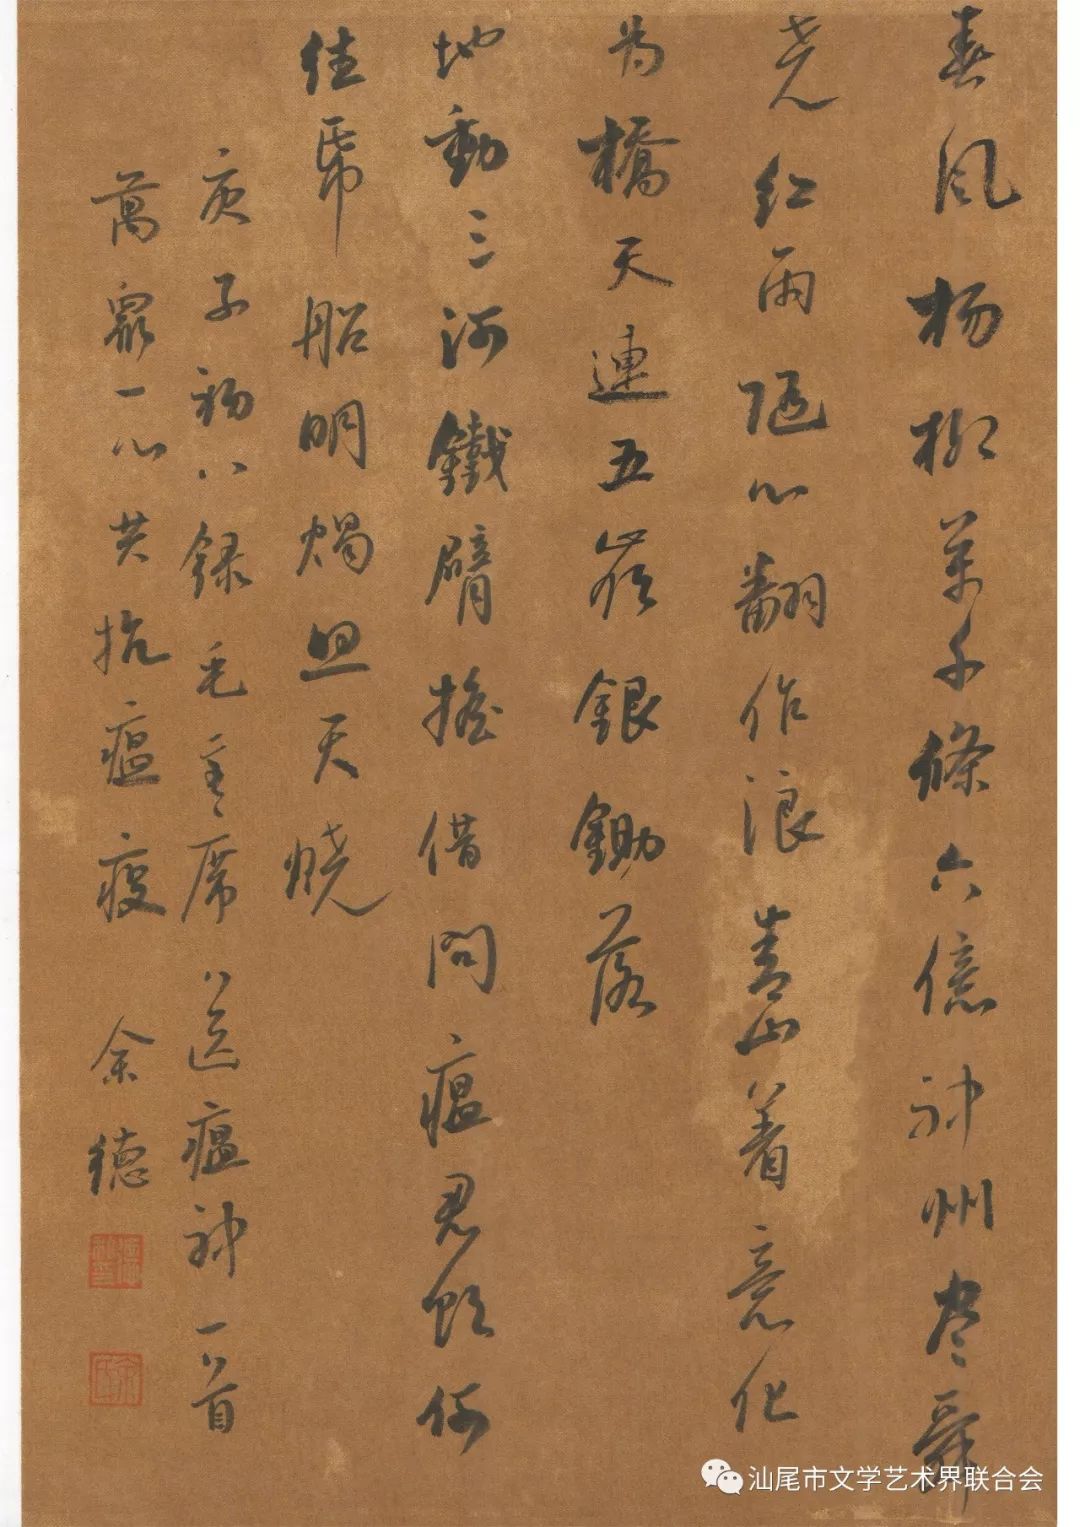 春风杨柳萬千條六億神州尽舜
尧红雨随心翻作浪青山着意化
为橋天連五嶺銀鋤落
地動三河鐵臂摇借問瘟君欲何
往纸船明燭照天烧
庚子初八録毛主席送瘟神一首
萬眾一心共抗瘟疫 余德
汕尾市文学艺术界联合会